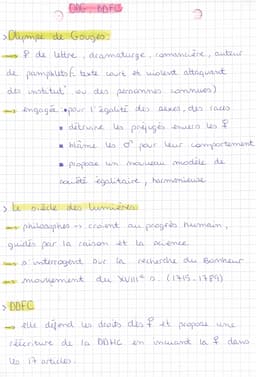 ODG - DDFC
> Olympe de Gouges :
→ ♀ de lettre, dramaturge, romancière, auteur
de pamphlets (= texte court et violent attaquant
des institut° ou des personnes connues)
→ engagée • pour l'égalité des sexes, des races
▪ détruire les préjugés envers les ♀
▪ blâme les ♂ pour leur comportement
▪ propose un nouveau modèle de
société égalitaire, harmonieuse
> le siècle des lumières
→ philosophes → croient au progrès humain,
guidés par la raison et la science
→ s'interrogent sur la recherche du Bonheur
→ mouvement du XVIIIe s. (1715-1789)
> DDFC
→ elle défend les droits des ♀ et propose une
réécriture de la DDHC en incluant la ♀ dans
les 17 articles.